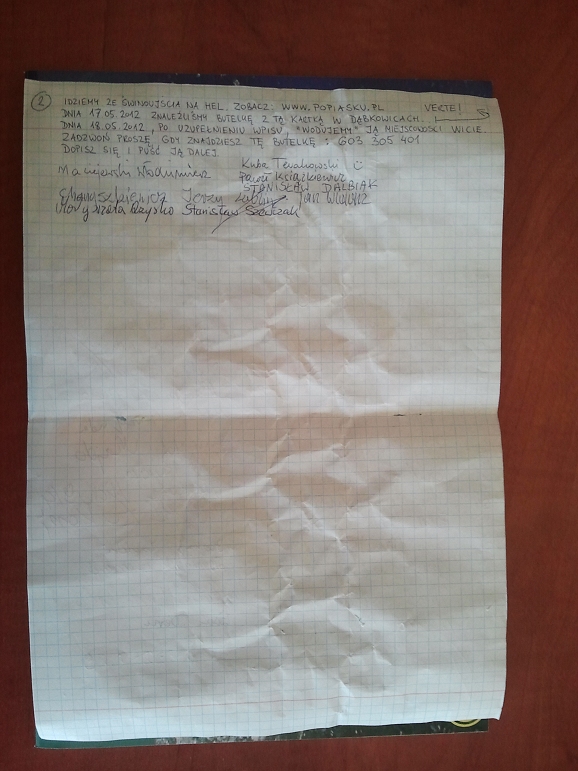 2 IDZIEMY ZE ŚWINOUJŚCIA NA HEL. ZOBACZ: WWW.POPIASKU.PL VERTE!
DNIA 17.05.2012 ZNALEŹLIŚMY BUTELKĘ Z TĄ KARTKĄ W DĄBKOWICACH.
DNIA 18.05.2012, PO UZUPEŁNIENIU WPISU, "WODUJEMY" JĄ MIEJSCOWOŚCI WICIE.
ZADZWOŃ PROSZĘ, GDY ZNAJDZIESZ TĘ BUTELKĘ: 603 305 401
DOPISZ SIĘ I PUŚĆ JĄ DALEJ.
Kuba Terakowski
Maciejewski Włodzimierz
Paweł Książkiewicz
STANISŁAW DALBIAK
Jerzy Jan
Stanisław Szewczak